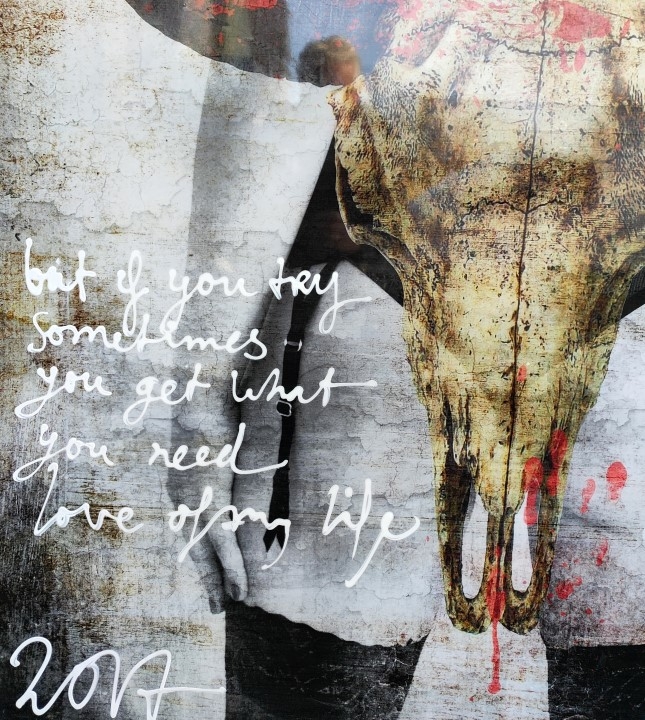 but if you try
sometimes
you get what
you need
love of my life
2017